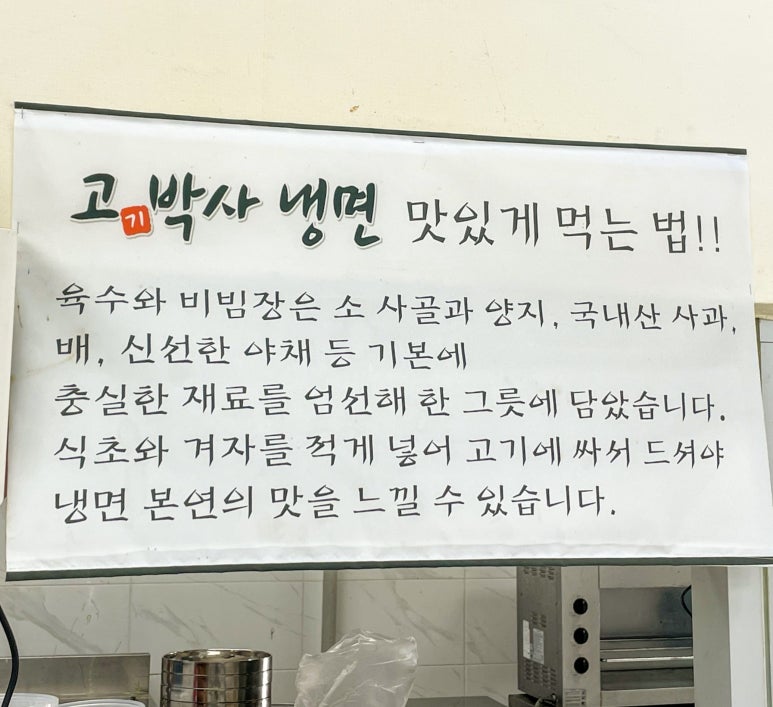 고기박사 냉면 맛있게 먹는 법!!
육수와 비빔장은 소 사골과 양지, 국내산 사과,
배, 신선한 야채 등 기본에
충실한 재료를 엄선해 한 그릇에 담았습니다.
식초와 겨자를 적게 넣어 고기에 싸서 드셔야
냉면 본연의 맛을 느낄 수 있습니다.